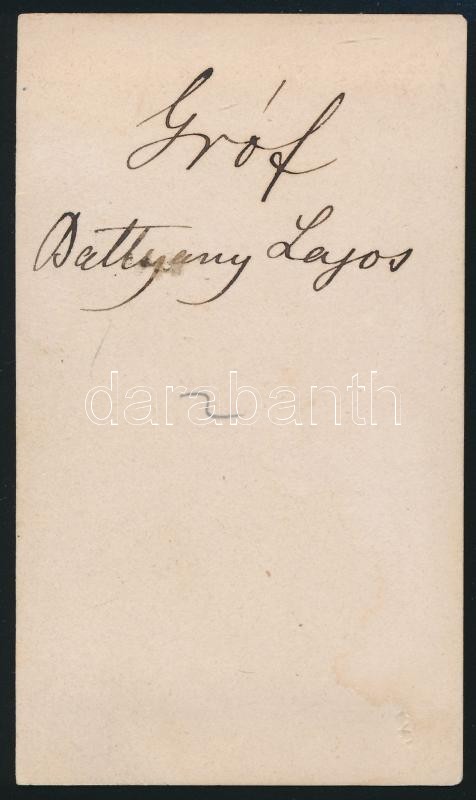 Gróf
Battyany Lajos
darabanth